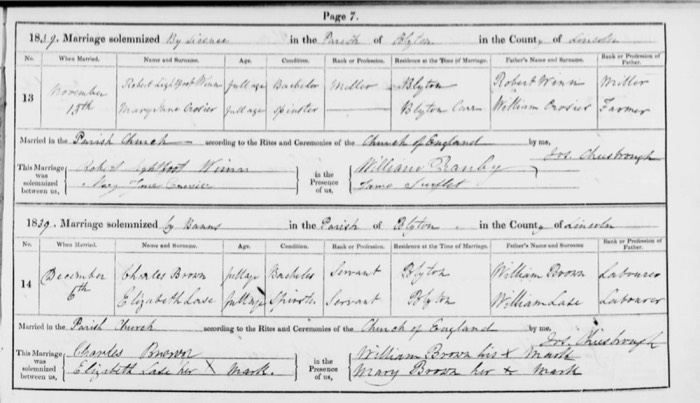 Page 7.
1839. Marriage solemnized By Licence in the Parish of Blyton in the County of Lincoln
No. When Married. Name and Surname. Age. Condition. Rank or Profession. Residence at the Time of Marriage. Father's Name and Surname. Rank or Profession of Father.
13 November 13th Robert Lightfoot Winn full age Bachelor Miller Blyton Robert Winn Miller
Mary Jane Crosier full age Spinster Blyton Carr William Crosier Farmer
Married in the Parish Church according to the Rites and Ceremonies of the Church of England by me,
Jos. Cheesbrough
This Marriage was solemnized between us, Robert Lightfoot Winn in the Presence of us, William
Mary Jane James
1839. Marriage solemnized by Banns in the Parish of Blyton in the County of Lincoln
No. When Married. Name and Surname. Age. Condition. Rank or Profession. Residence at the Time of Marriage. Father's Name and Surname. Rank or Profession of Father.
14 December 6th Charles Brown full age Bachelor Servant Blyton William Brown Labourer
Elizabeth Lase full age Spinster Servant Blyton William Lase Labourer
Married in the Parish Church according to the Rites and Ceremonies of the Church of England by me,
Jos. Cheesbrough
This Marriage was solemnized between us, Charles Brown in the Presence of us, William Brown his x mark
Elizabeth Lase her x mark. Mary Brown her x mark